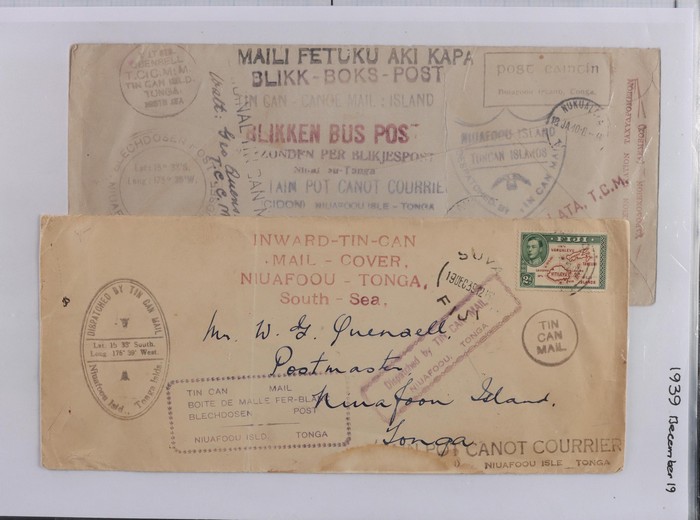 MAILI FETUKU AKI KAPA
BLIKK-BOKS-POST
TIN CAN-CANOE MAIL: ISLAND
BLIKKEN BUS POST
ZONDEN PER BLIKJESPOST
TAIN POT CANOT COURRIER
NIUAFOOU ISLE - TONGA
T.C.C.M.M.
TIN CAN ISLD.
TONGA.
post caintin
NIUAFOOU ISLAND
TIN CAN ISLANDS
TIN CAN MAIL
LATA, T.C.M.
INWARD-TIN-CAN
MAIL - COVER,
NIUAFOOU - TONGA,
South - Sea.
SUVA
19DEC39
FIJI
FIJI
DISPATCHED BY TIN CAN MAIL
Lat. 15 33' South.
Long. 175° 38' West.
Niuafoou Isld., Tonga Islds.
Dispatched by TIN CAN MAIL
NIUAFOOU, TONGA
TIN
CAN
MAIL
Mr. W. G. Quensell.
Postmaster.
Niuafoou Island.
Tonga
TIN CAN MAIL
BOITE DE MALLE FER-BLA
BLECHDOSEN POST
NIUAFOOU ISLD. TONGA
POT CANOT COURRIER
NIUAFOOU ISLE TONGA
1939 December 19